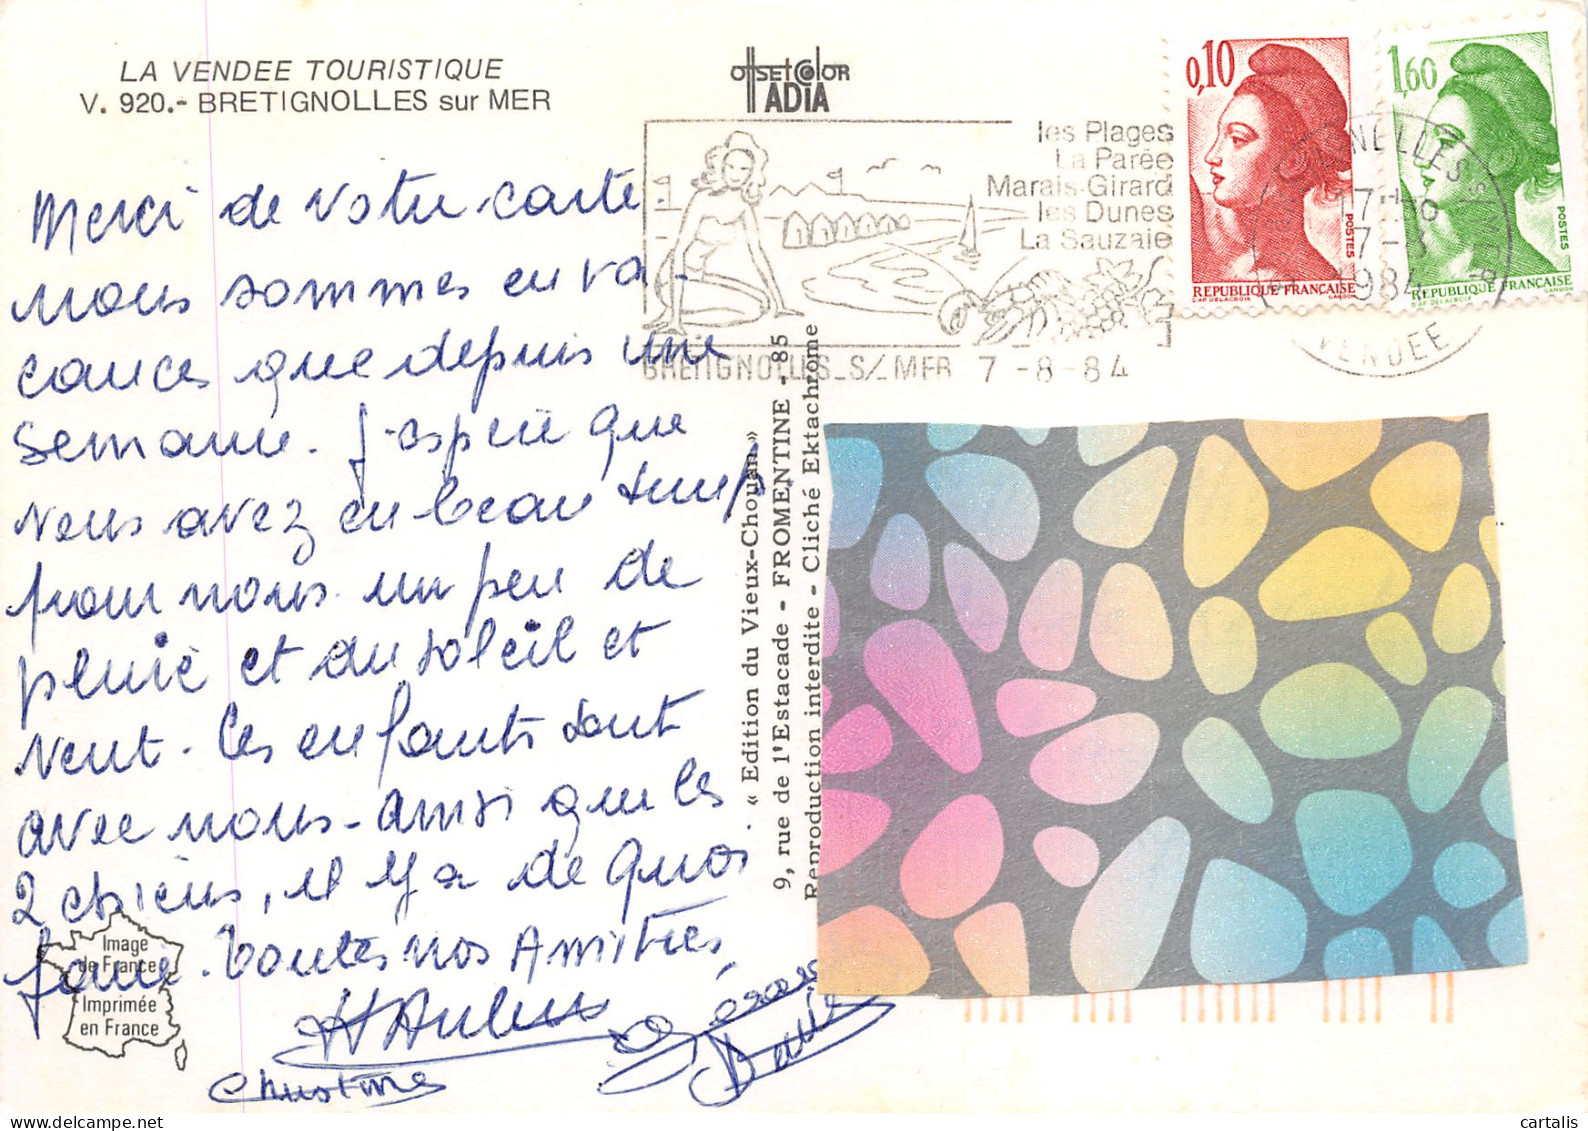 LA VENDEE TOURISTIQUE
V. 920.- BRETIGNOLLES sur MER
OffSETCOlOR
IADIA
les Plages
La Parée
Marais-Girard
les Dunes
La Sauzaie
BRETIGNOLLES_S/_MER 7 -8 -84
0,10
POSTES
REPUBLIQUE FRANÇAISE
D'AP DELACROIX GANDON
1,60
POSTES
REPUBLIQUE FRANÇAISE
D'AP DELACROIX GANDON
7-8
1984
VENDEE
Merci de votre carte.
nous sommes en va-
cances que depuis une
semaine. J'espère que
vous avez eu beau temps,
pour nous un peu de
pluie et du soleil et
vent. Les enfants sont
avec nous - ainsi que les
2 chiens, il y a de quoi
faire. Toutes nos Amitiés,
Christine
« Edition du Vieux-Chouan »
9, rue de l'Estacade - FROMENTINE - 85
Reproduction interdite - Cliché Ektachrome
Image
de France
Imprimée
en France
cartalis
www.delcampe.net